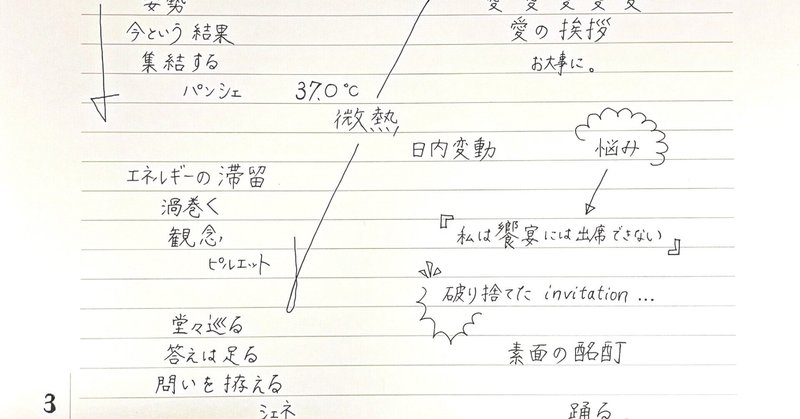 姿勢
今という結果
集結する
パンシェ
37.0℃
微熱
愛 愛 愛 愛 愛
愛の挨拶
お大事に。
日内変動
悩み
エネルギーの滞留
渦巻く
観念,
ピルエット
『私は饗宴には出席できない』
破り捨てた invitation …
堂々巡る
答えは足る
問いを拵える
シェネ
素面の酩酊
踊る
3